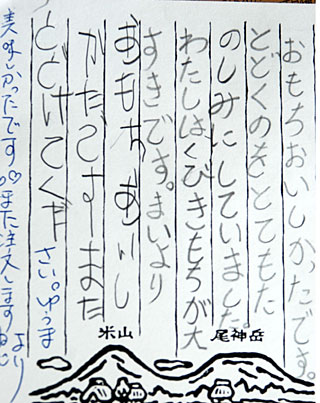 おもちおいしかったです。
とどくのをとてもた
のしみにしていました。
わたしはくびきもちが大
すきです。まいより
おもちおいし
かたですまた
とどけてくださ い。ゆうま
美味しかったです♡また注文します より
尾神岳
米山